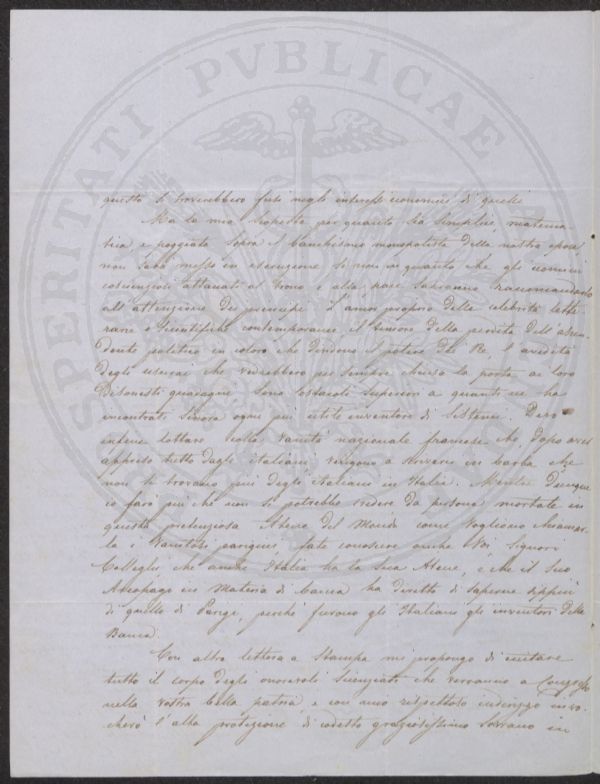 PROSPERITATI PVBLICAE
questo si troverebbero fusi negli interessi economici di quelli
Ma la mia scoperta per quanto sia semplice, matema-
tica, e poggiata sopra il bancherismo monopolista della nostra epoca
non sarà messo in esecuzione se non in quanto che gli uomini
coscienziosi attaccati al trono e alla pace sapranno raccomandarlo
all'attenzione dei principi. L'amor proprio delle celebrità lette-
rarie e scientifiche contemporanee il timore della perdita dell'ascen-
dente politico in coloro che dividono il potere dei Re, l'avidità
degli usurai che vedrebbero per sempre chiusa la porta ai loro
disonesti guadagni sono ostacoli superiori a quanti ne ha
incontrati sinora ogni più utile inventore di sistemi. Devo
infine lottare colla vanità nazionale francese che, dopo aver
appreso tutto dagli italiani vengono a scrivere in barba che
non si trovano più degli italiani in Italia. Mentre dunque
io farò più che non si potrebbe credere da persona mortale in
questa pretenziosa Atene del Mondo come vogliono chiamar-
la i vanitosi parigini, fate conoscere anche Voi Signori
Colleghi che anche Italia ha la sua Atene, e che il suo
Areopago in materia di banca ha diritto di saperne di più
di quello di Parigi, perché furono gli Italiani gli inventori della
Banca.
Con altra lettera a stampa mi propongo di invitare
tutto il corpo degli onorevoli Scienziati che verranno a Congresso
nella vostra bella patria, e con uno rispettoso indirizzo invo-
cherò l'alta protezione di codesto graziosissimo Sovrano in